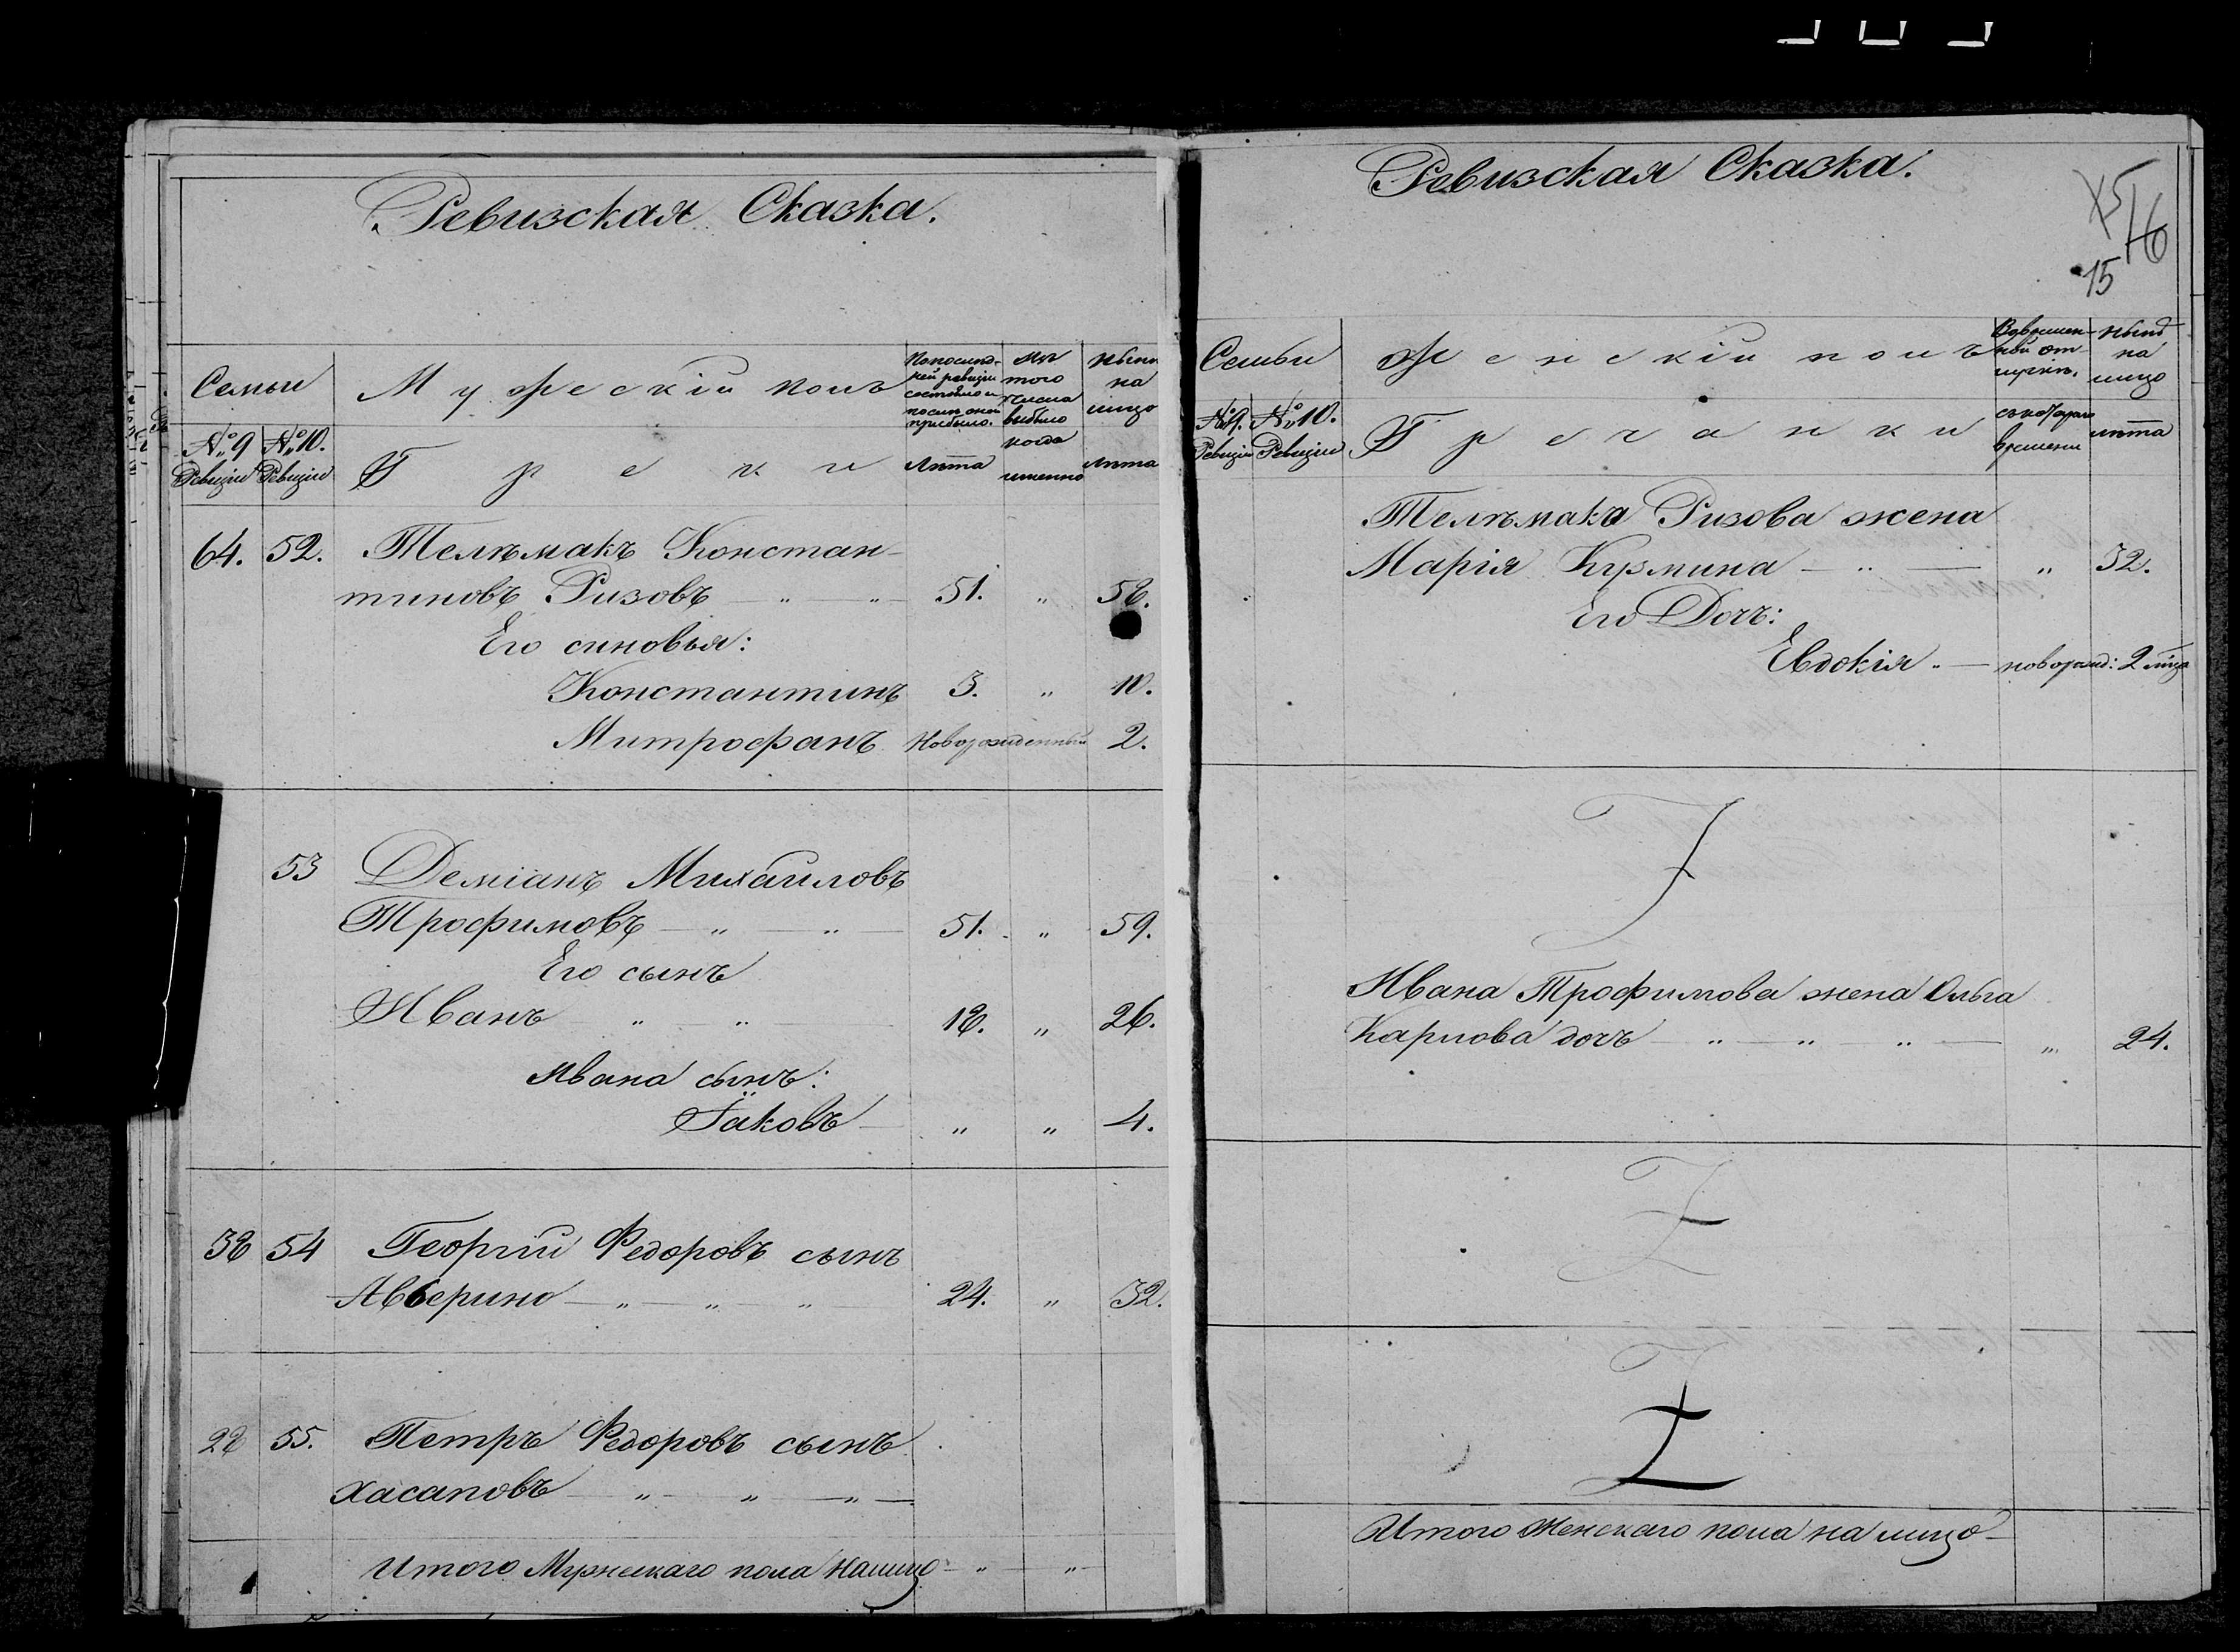 Ревизская Сказка.
Семьи
№9 Ревизіи
№10. Ревизіи
Мужескій полъ
Греки
По последней ревизіи состояло и после оной прибыло.
лѣта
Изъ того числа выбыло
когда именно
Ныне на лицо
лѣта
64. 52. Телѣмакъ Констан-
тиновъ Ризовъ — „ — „ — 51. „ 58.
Его синовья:
Константинъ 3. „ 10.
Митрофанъ Новорожденный 2.
53 Деміанъ Михаиловъ
Трофимовъ — „ — „ — 51. „ 59.
Его сынъ
Иванъ „ — „ — 18. „ 26.
Ивана сынъ:
Іаковъ — „ „ 4.
38 54 Георгій Федоровъ сынъ
Авьерино — „ — „ — „ 24. „ 32.
28 55. Петръ Федоровъ сынъ
Хасаповъ — „ — „ — „ —
Итого Мужескаго пола налицо — „ — „ —
Ревизская Сказка.
15
16
15
Семьи
№9. Ревизіи
№10. Ревизіи
Женскій полъ
Гречанки
Во временной отлучкѣ.
съ котораго времени
Нынѣ на лицо
лѣта
Телѣмака Ризова жена
Марія Кузмина — „ — „ 32.
Его Дочъ:
Евдокія „ — новорожд: 2 мца
Ивана Трофимова жена Ольга
Карпова дочъ — „ — „ — „ — „ 24.
Итого Женскаго пола на лицо —